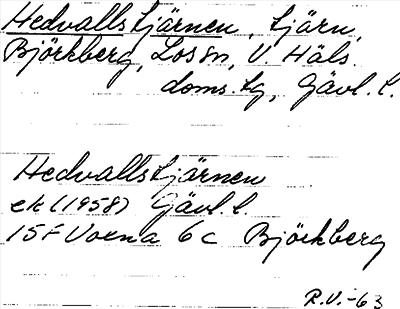 Hedvallstjärnen, tjärn,
Björkberg, Los sn, V. Häls.
doms.tg, Gävl. l.
Hedvallstjärnen
ek (1958) Gävl. l.
15F Voxna 6c Björkberg
R.V. -63